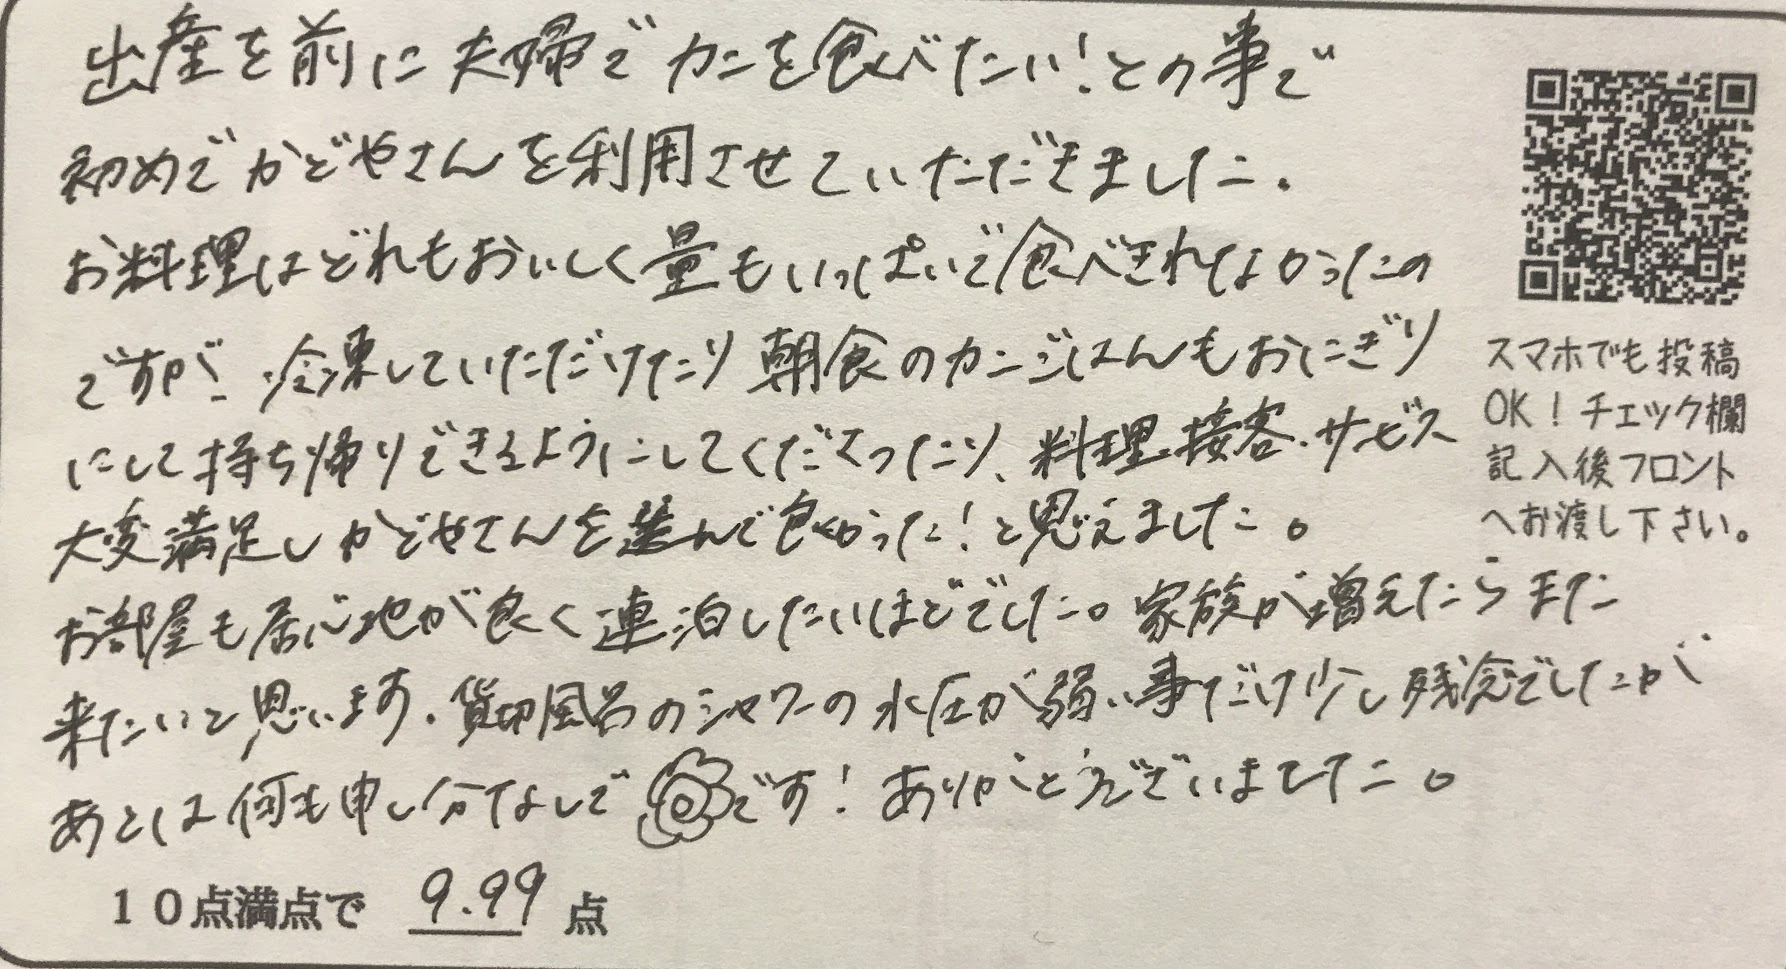 出産を前に夫婦でカニを食べたい！との事で
初めてかどやさんを利用させていただきました。
お料理はどれもおいしく量もいっぱいで食べきれなかったの
ですが、冷凍していただけたり朝食のカニごはんもおにぎり
にして持ち帰りできるようにしてくださったり、料理・接客・サービス
大変満足しかどやさんを選んで良かった！と思えました。
お部屋も居心地が良く連泊したいほどでした。家族が増えたらまた
来たいと思います。貸切風呂のシャワーの水圧が弱い事だけ少し残念でしたが
あとは何も申し分なしで です！ありがとうございました。
10点満点で 9.99 点
スマホでも投稿
OK！チェック欄
記入後フロント
へお渡し下さい。